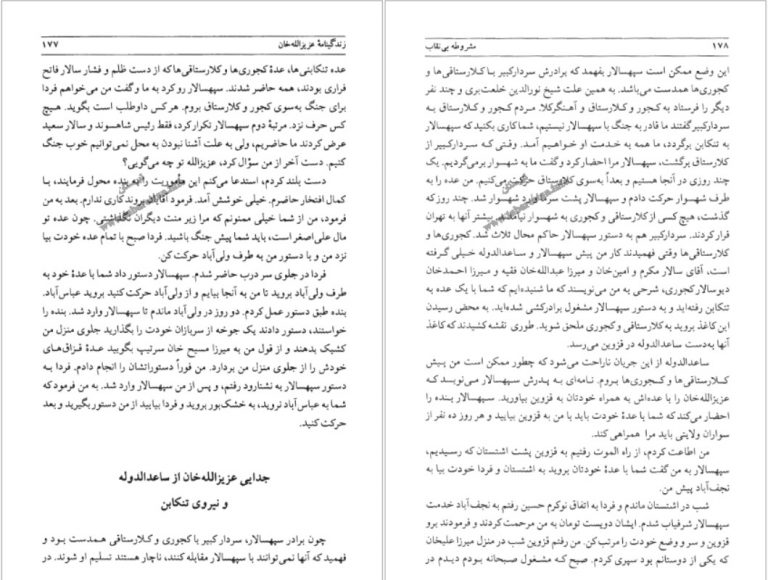 زندگینامهٔ عزیزالله‌خان ۱۷۷
عده تنکابنی‌ها، عدهٔ کجوری‌ها و کلارستاقی‌ها که از دست ظلم و فشار سالار فاتح
فراری بودند، همه حاضر شدند. سپهسالار رو کرد به ما و گفت من می‌خواهم فردا
برای جنگ به‌سوی کجور و کلارستاق بروم. هر کس داوطلب است بگوید. هیچ
کس حرف نزد. مرتبهٔ دوم سپهسالار تکرار کرد، فقط رئیس شاهسوند و سالار سعید
عرض کردند ما حاضریم، ولی به علت آشنا نبودن به محل نمی‌توانیم خوب جنگ
کنیم. دست آخر از من سؤال کرد، عزیزالله تو چه می‌گویی؟
دست بلند کردم، استدعا می‌کنم این مأموریت را به بنده محول فرمایند، با
کمال افتخار حاضرم. خیلی خوشش آمد. فرمود آقایان بروند کاری ندارم. بعد به من
فرمود، من از شما خیلی ممنونم که مرا زیر منت دیگران نگذاشتی. چون عده تو
مال علی‌اصغر است، باید شما پیش جنگ باشید. فردا صبح با تمام عده خودت بیا
نزد من و با دستور من به طرف ولی‌آباد حرکت کن.
فردا در جلوی سر درب حاضر شدم. سپهسالار دستور داد شما با عدهٔ خود به
طرف ولی‌آباد بروید تا من به آنجا بیایم و از ولی‌آباد حرکت کنید بروید عباس‌آباد.
بنده طبق دستور عمل کردم. دو روز در ولی‌آباد ماندم تا سپهسالار وارد شد. بنده را
خواستند، دستور دادند یک جوخه از سربازان خودت را بگذارید جلوی منزل من
کشیک بدهند و از قول من به میرزا مسیح خان سرتیپ بگویید عدهٔ قزاق‌های
خودش را از جلوی منزل من بردارد. من فوراً دستوراتشان را انجام دادم. فردا به
دستور سپهسالار به نشتارود رفتم، و پس از من سپهسالار وارد شد. به من فرمود که
شما به عباس‌آباد نروید، به خشک‌بور بروید و فردا بیایید از من دستور بگیرید و بعد
حرکت کنید.
جدایی عزیزالله‌خان از ساعدالدوله
و نیروی تنکابن
چون برادر سپهسالار، سردار کبیر با کجوری و کلارستاقی همدست بود و
فهمید که آنها نمی‌توانند با سپهسالار مقابله کنند، ناچار هستند تسلیم او شوند. در
۱۷۸ مشروطه بی‌نقاب
این وضع ممکن است سپهسالار بفهمد که برادرش سردارکبیر با کلارستاقی‌ها و
کجوری‌ها همدست می‌باشد. به همین علت شیخ نورالدین خلعت‌بری و چند نفر
دیگر را فرستاد به کجور و کلارستاق و آهنگرکلا. مردم کجور و کلارستاق به
سردارکبیر گفتند ما قادر به جنگ با سپهسالار نیستیم، شما کاری بکنید که سپهسالار
به تنکابن برگردد، ما همه به خدمت او خواهیم آمد. وقتی که سردارکبیر از
کلارستاق برگشت، سپهسالار مرا احضار کرد و گفت ما به شهسوار برمی‌گردیم. یک
چند روزی در آنجا هستیم و بعداً به‌سوی کلارستاق حرکت می‌کنیم. من عده را به
طرف شهسوار حرکت دادم و سپهسالار پشت سر ما وارد شهسوار شد. چند روز که
گذشت، هیچ کسی از کلارستاقی و کجوری به شهسوار نیامدند. بیشتر آنها به تهران
فرار کردند. سردارکبیر هم به دستور سپهسالار حاکم محال ثلاث شد. کجوری‌ها و
کلارستاقی‌ها وقتی فهمیدند کار من پیش سپهسالار و ساعدالدوله خیلی گرفته
است، آقای سالار مکرم و امین‌خان و میرزا عبدالله‌خان فقیه و میرزا احمدخان
دیوسالار کجوری، شرحی به من می‌نویسند که ما شنیده‌ایم که شما با یک عده به
تنکابن رفته‌اید و به دستور سپهسالار مشغول برادرکشی شده‌اید. به محض رسیدن
این کاغذ بروید به کلارستاقی و کجوری ملحق شوید. طوری نقشه کشیدند که کاغذ
آنها به‌دست ساعدالدوله در قزوین می‌رسد.
ساعدالدوله از این جریان ناراحت می‌شود که چطور ممکن است من پیش
کلارستاقی‌ها و کجوری‌ها بروم. نامه‌ای به پدرش سپهسالار می‌نویسد که
عزیزالله‌خان را با عده‌اش به همراه خودتان به قزوین بیاورید. سپهسالار بنده را
احضار می‌کند که شما با عدهٔ خودت باید با من به قزوین بیایید و هر روز ده نفر از
سواران ولایتی باید مرا همراهی کند.
من اطاعت کردم، از راه الموت رفتیم به قزوین پشت اشتستان که رسیدیم،
سپهسالار به من گفت شما با عدهٔ خودتان بروید به اشتستان و فردا خودت بیا به
نجف‌آباد پیش من.
شب در اشتستان ماندم و فردا به اتفاق نوکرم حسین رفتم به نجف‌آباد خدمت
سپهسالار شرفیاب شدم. ایشان دویست تومان به من مرحمت کردند و فرمودند برو
قزوین و سر و وضع خودت را مرتب کن. من رفتم قزوین شب در منزل میرزا علیخان
که یکی از دوستانم بود سپری کردم. صبح که مشغول صبحانه بودم دیدم در